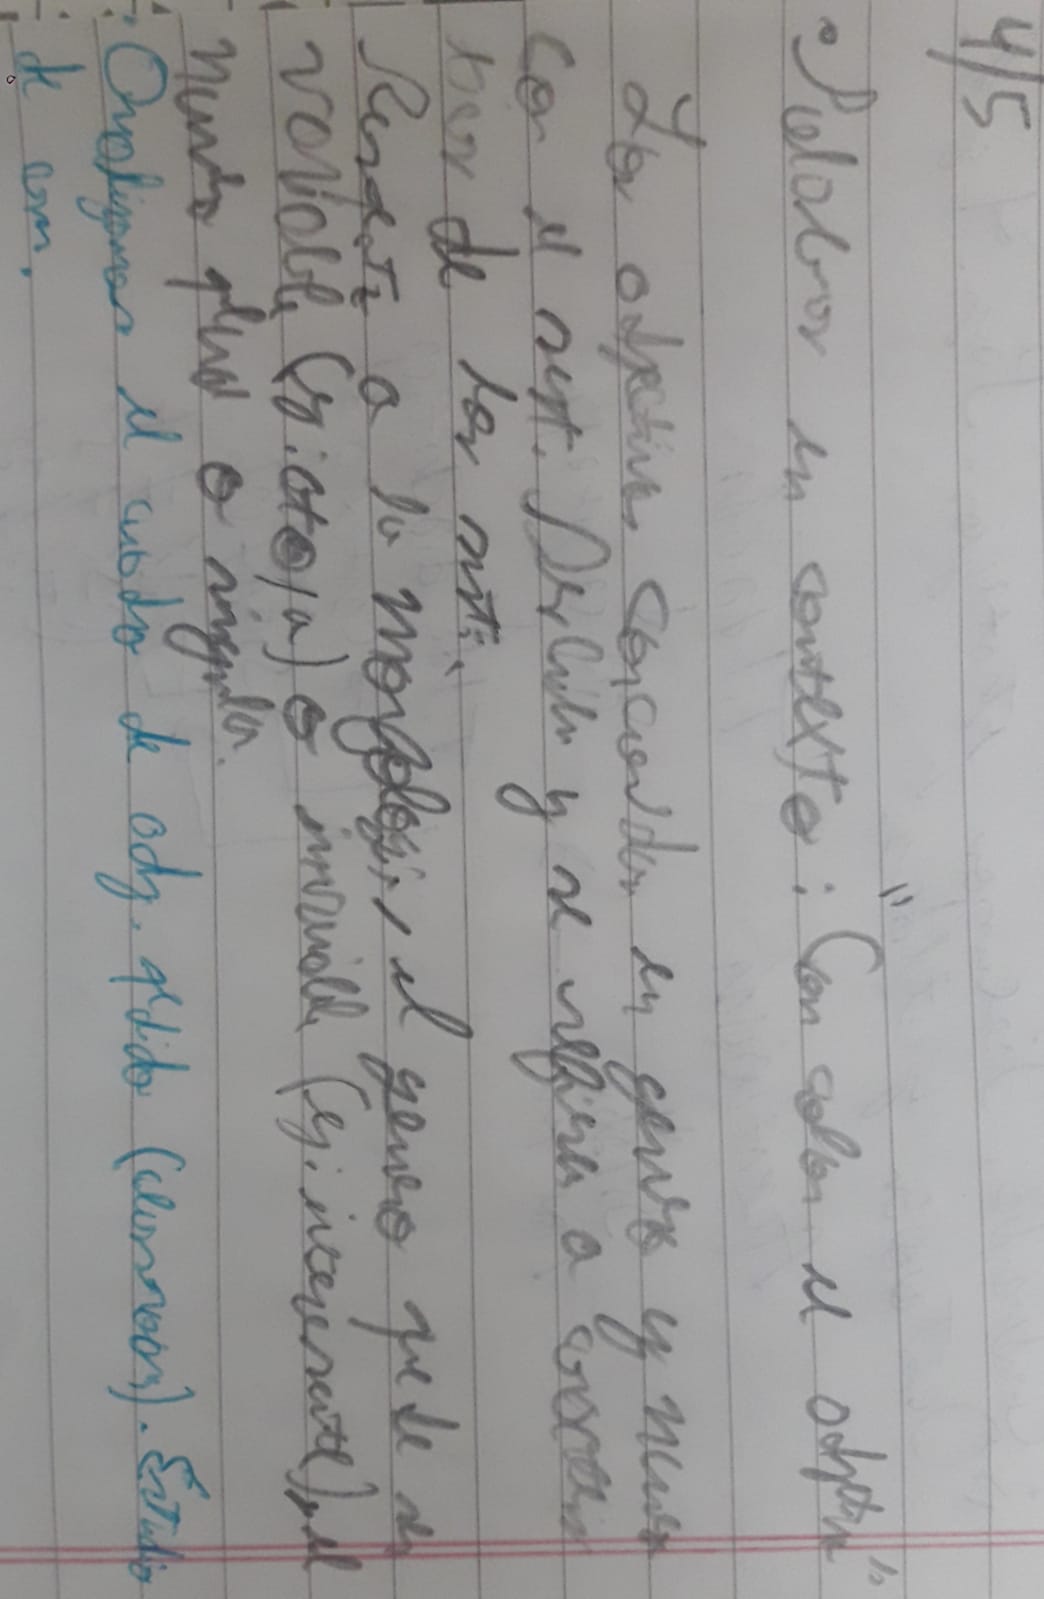 4/5
• Palabras en contexto: "Con celan el adjetivo"
Los adjetivos concuerdan en genero y numero
con el sust. Describen y se refieren a
de los sust.
Respecto a la morfología, el genero puede ser
variable (ej. ato/a) o invariable (ej. interesante), el
numero plural o singular.
Analizamos el cuadro de adj. pedido (alumnos). Estudio
de com.